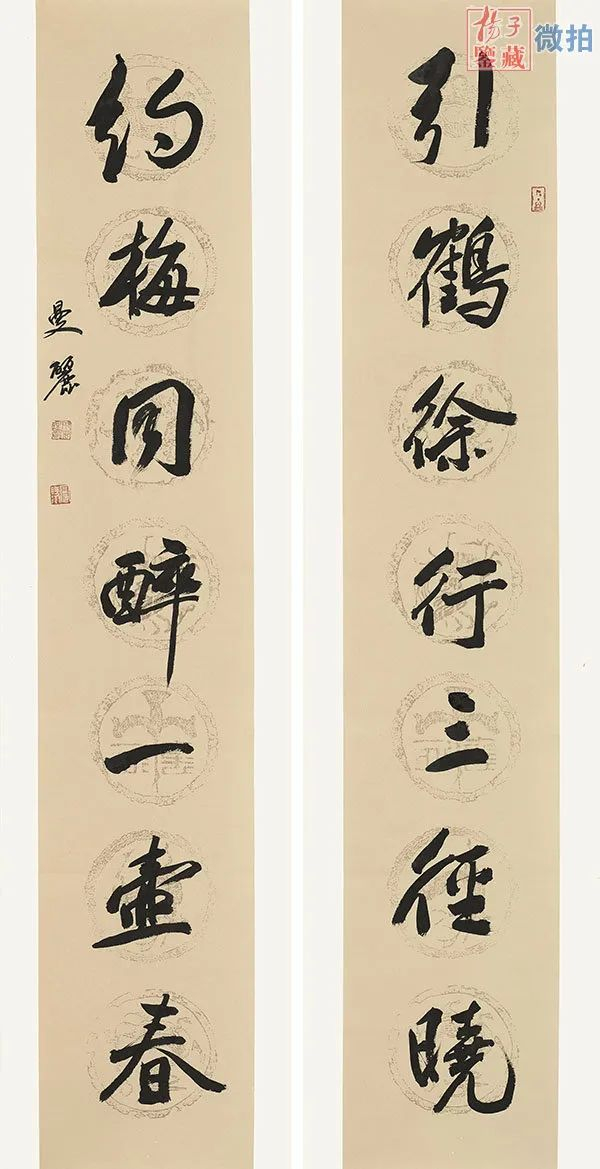 引鶴徐行三徑曉
約梅同醉一壺春
曼麗
揚子鑒藏
微拍